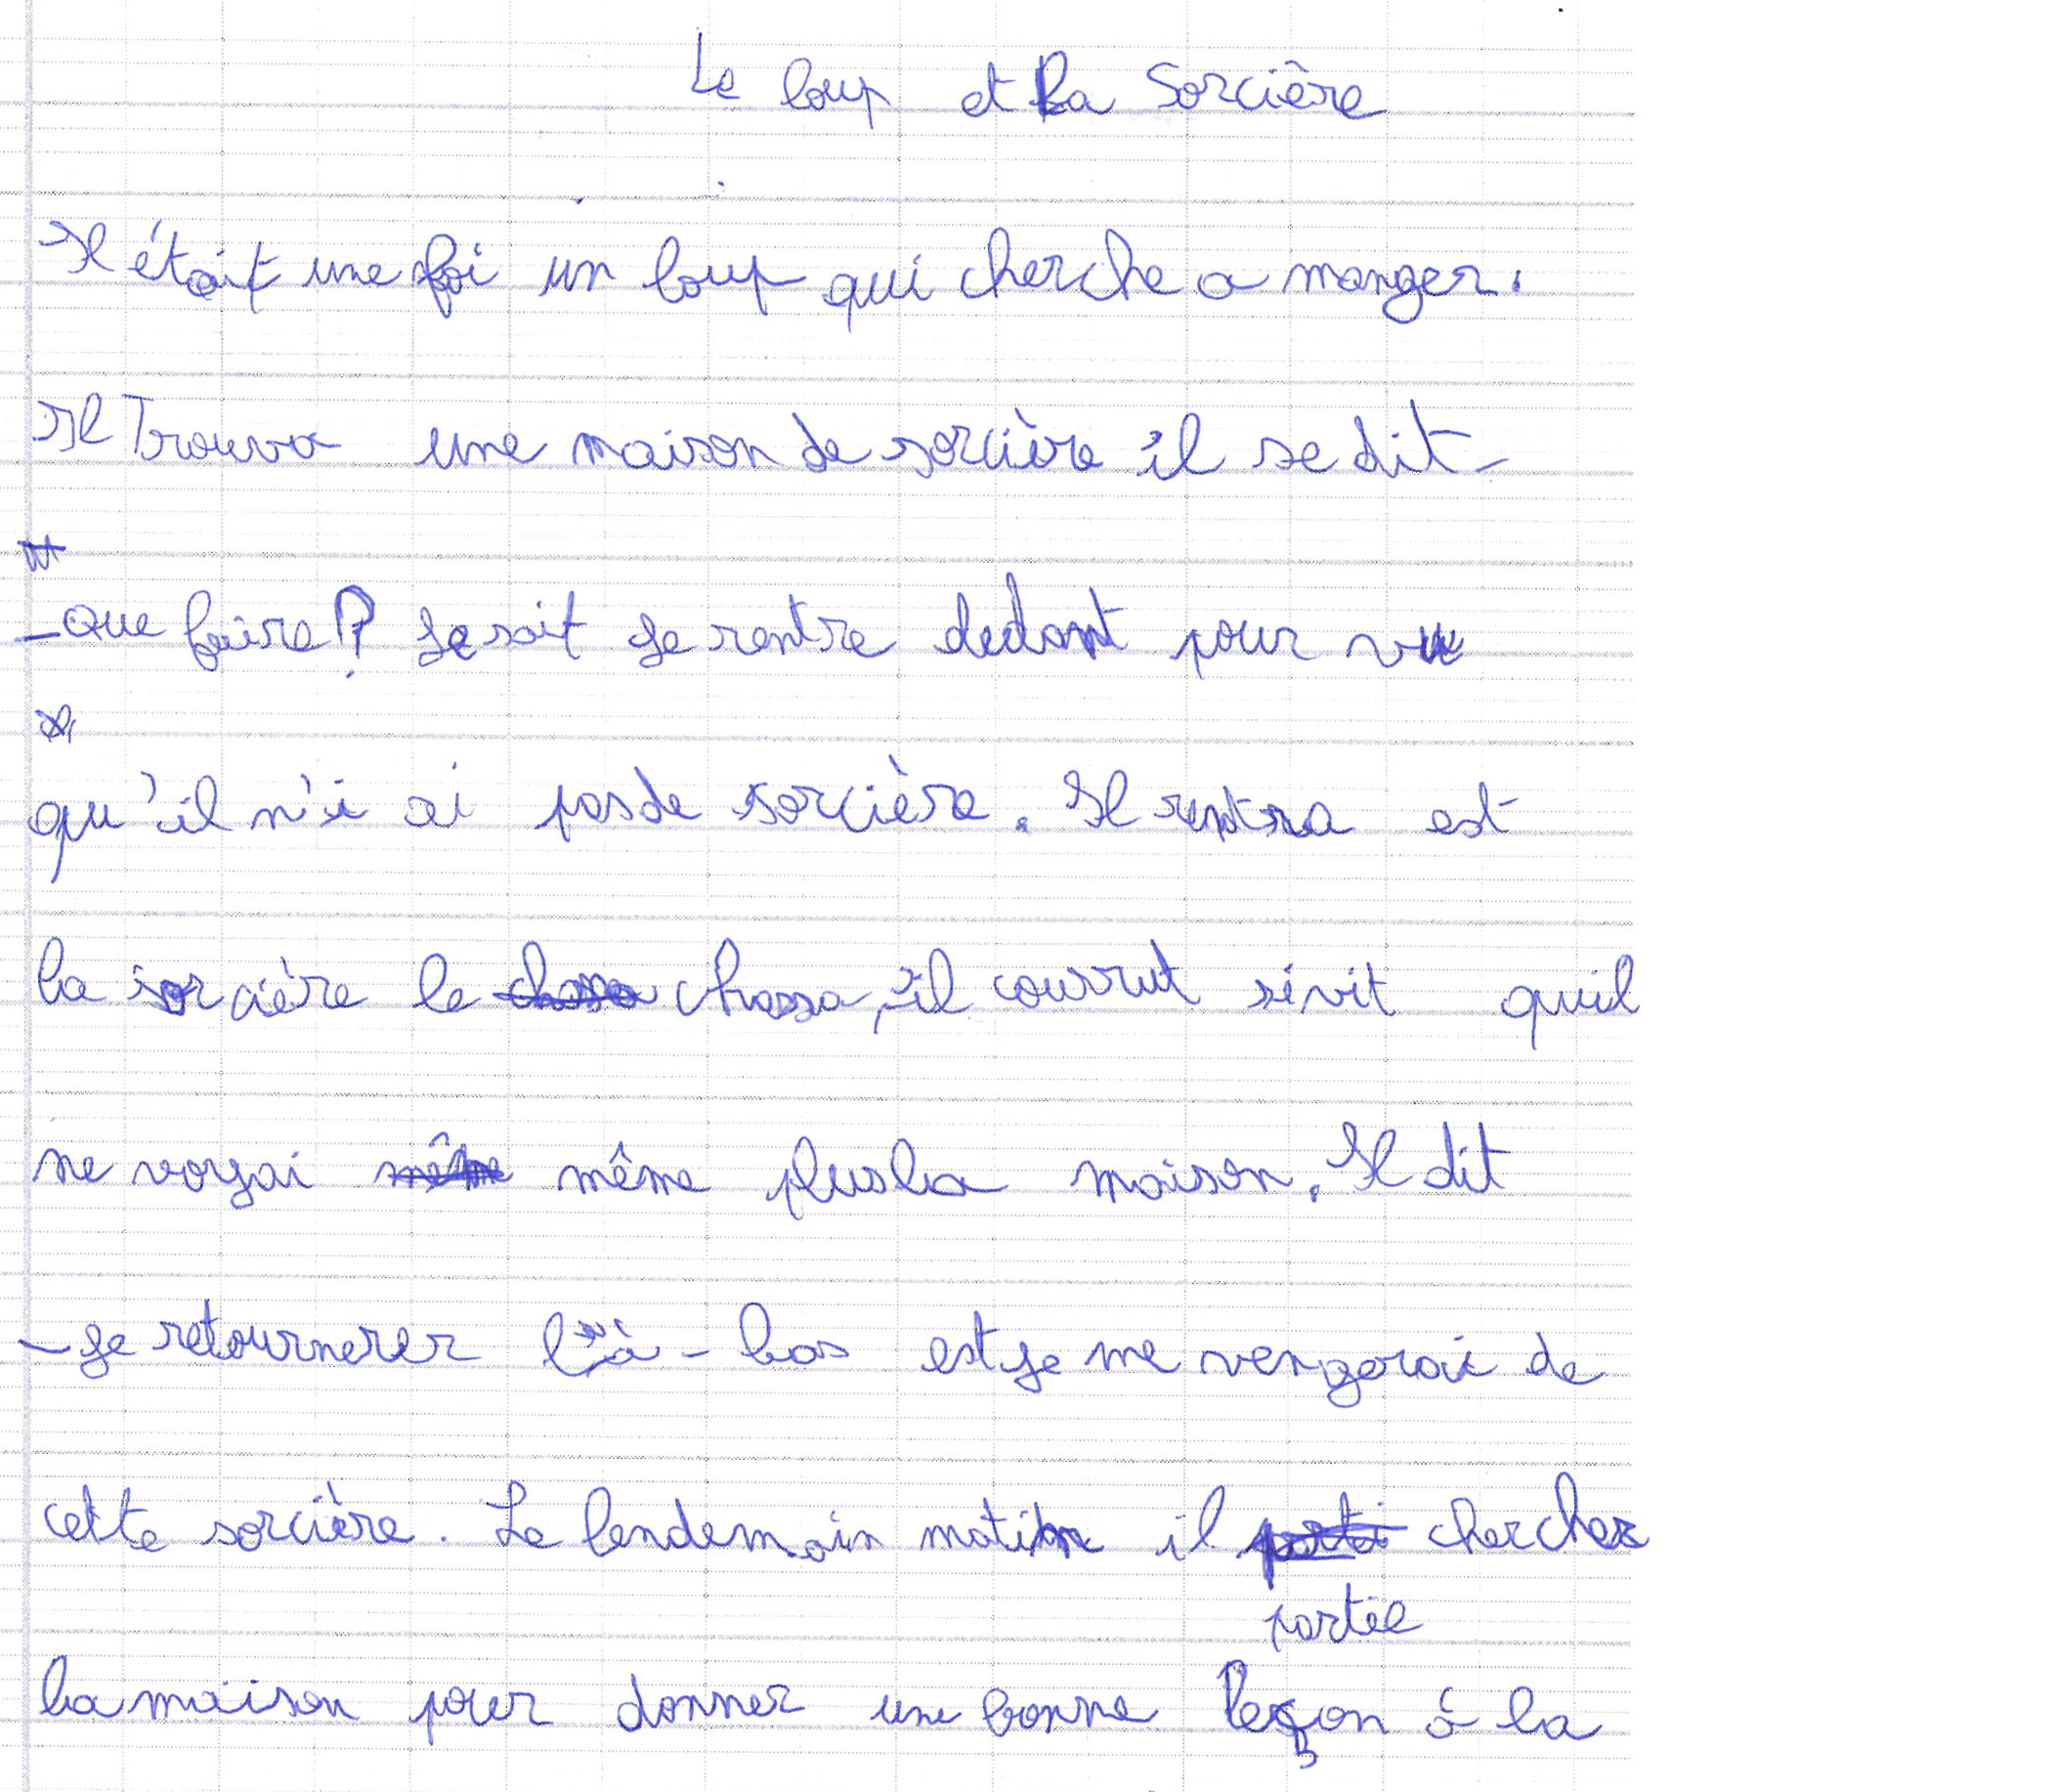 Le loup et la Sorcière
Il était une foi un loup qui cherche a manger.
Il Trouva une maison de sorcière il se dit
-que faire? Je sait je rentre dedant pour vu
qu'il n'i ai pas de sorcière. Il rentra est
la sorcière le chassa chassa, il courrut sévit quil
ne voyai même même plus la maison. Il dit
-je retournerer là-bas est je me vengerai de
cette sorcière. Le lendemain matin il parti chercher
partie
la maison pour donner une bonne leçon à la